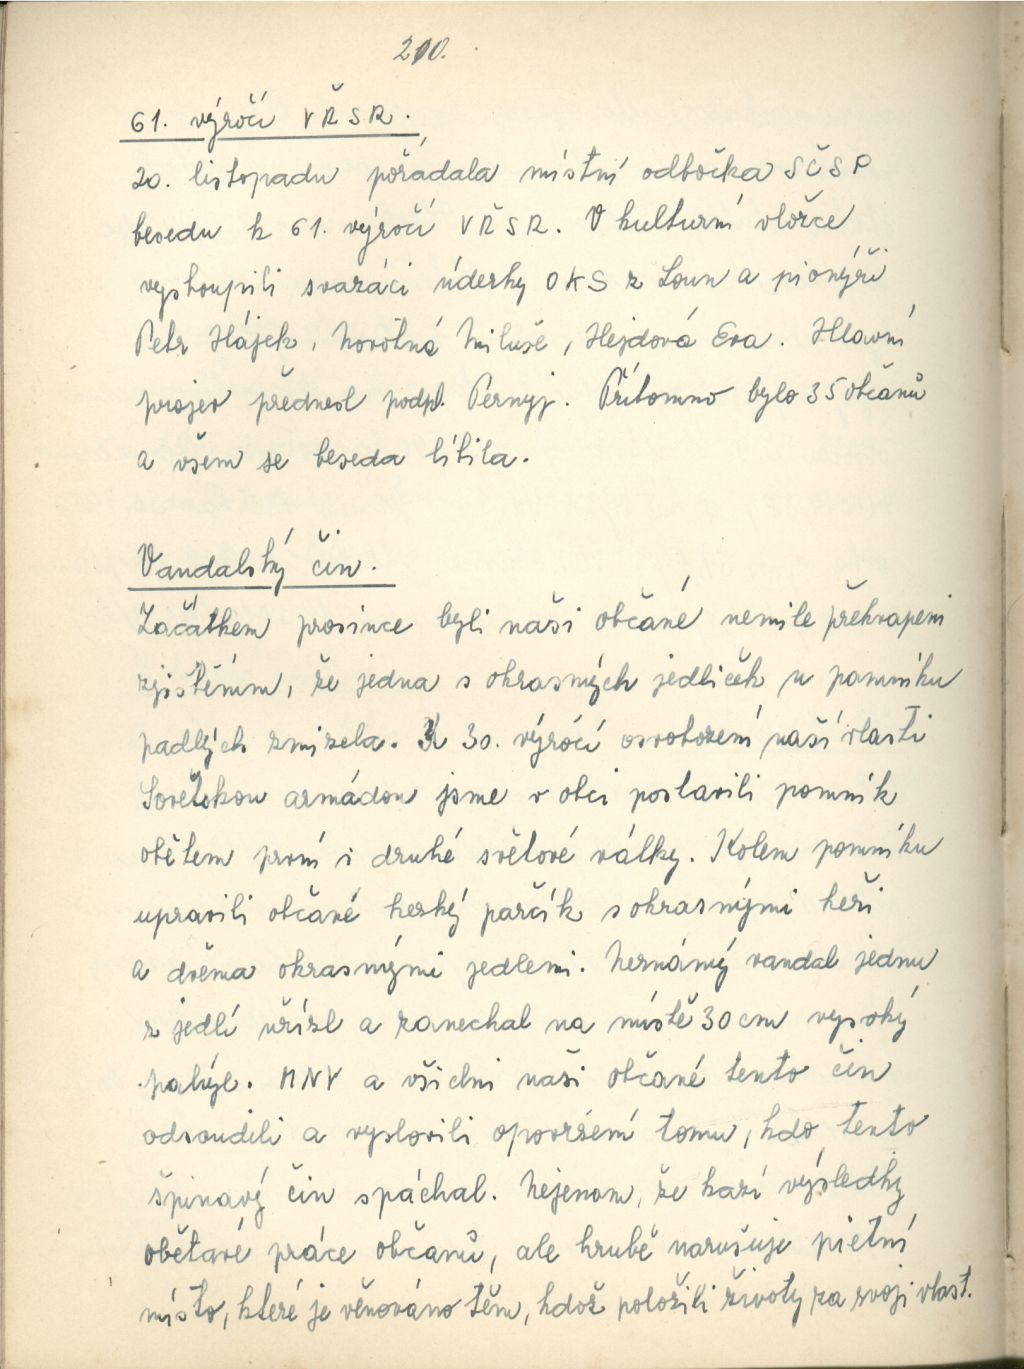 210.
61. výročí VŘSR.
20. listopadu pořádala místní odbočka SČSP
besedu k 61. výročí VŘSR. V kulturní vložce
vystoupili svazáci úderky OKS z Loun a pionýři
Petr Hájek, Novotná Miluše, Hejdová Eva. Hlavní
projev přednesl podpl. Pernyj. Přítomno bylo 35 občanů
a všem se beseda líbila.
Vandalský čin.
Začátkem prosince byli naši občané nemile překvapeni
zjištěním, že jedna s okrasných jedliček u pomníku
padlých zmizela. K 30. výročí osvobození naší vlasti
Sovětskou armádou jsme v obci postavili pomník
obětem první i druhé světové války. Kolem pomníku
upravili občané hezký parčík s okrasnými keři
a dvěma okrasnými jedlemi. Neznámý vandal jednu
z jedlí uřízl a zanechal na místě 30 cm vysoký
pahýl. MNV a všichni naši občané tento čin
odsoudili a vyslovili opovržení tomu, kdo tento
špinavý čin spáchal. Nejenom, že kazí výsledky
obětavé práce občanů, ale hrubě narušuje pietní
místo, které je věnováno těm, kdož položili životy za svoji vlast.